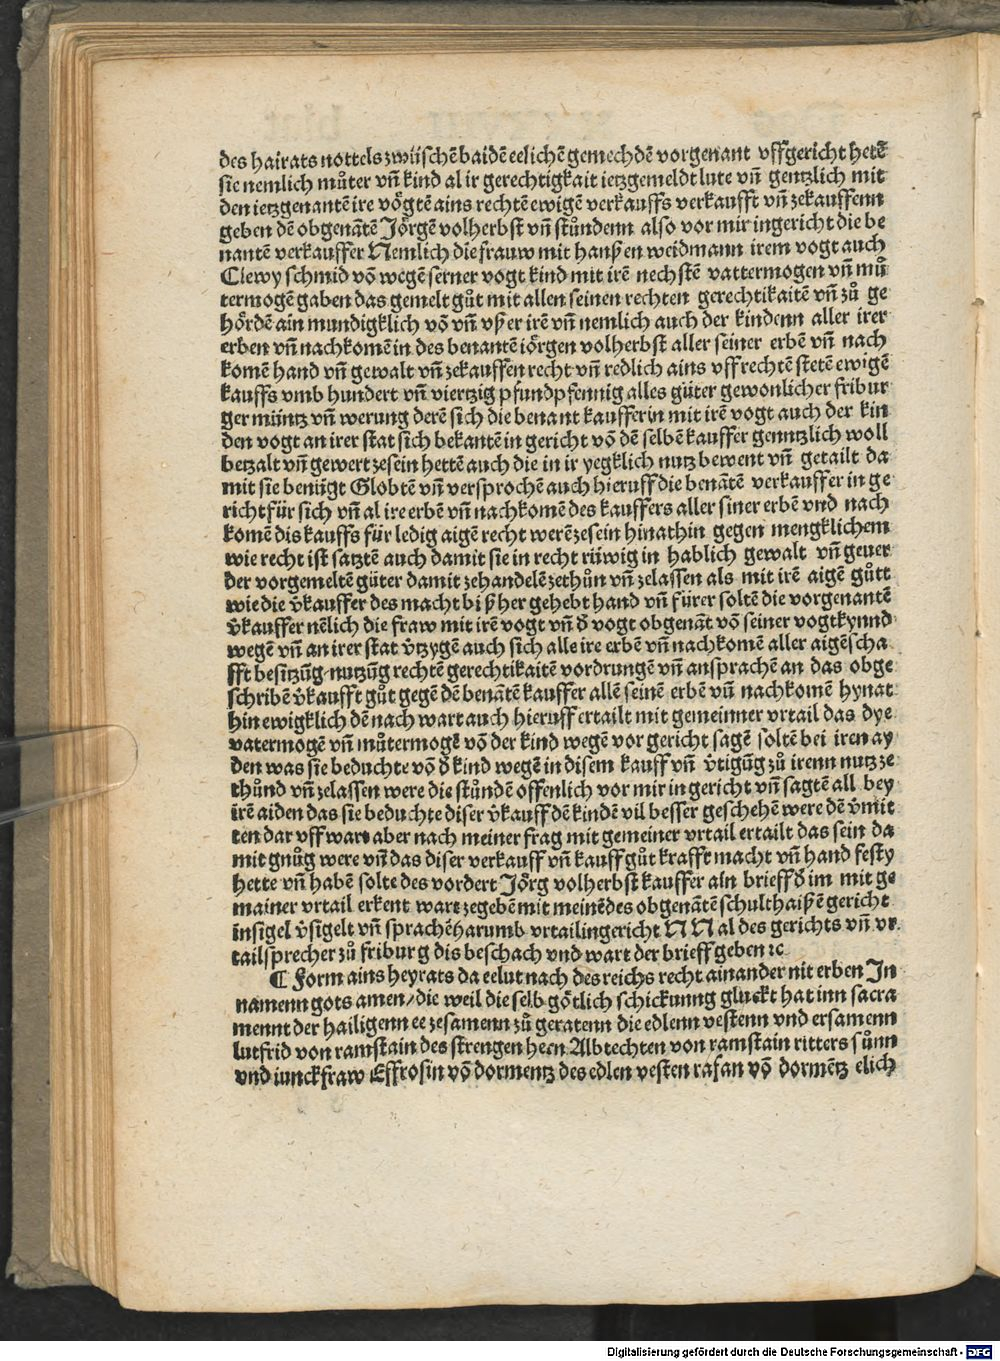 des hairats nottels zwüschē baidē eelichē gemechdē vorgenant vffgericht hetē
sie nemlich můter vñ kind al ir gerechtigkait ietzgemeldt lute vñ gentzlich mit
den ietzgenantē ire vögtē ains rechtē ewigē verkauffs verkaufft vñ zekauffenn
geben dē obgenātē Jörgē volherbst vñ stůndenn also vor mir in gericht die be
nantē verkauffer Nemlich die frauw mit hanßen weidmann irem vogt auch
Clewy schmid vō wegē serner vogt kind mit irē nechstē vattermogen vñ mů
termogē gaben das gemelt gůt mit allen seinen rechten gerechtikaitē vñ zů ge
hördē ain mundigklich vō vñ vß er irē vñ nemlich auch der kindenn aller irer
erben vñ nachkomē in des benantē iörgen volherbst aller seiner erbē vñ nach
komē hand vñ gewalt vñ zekauffen recht vñ redlich ains vffrechtē stetē ewigē
kauffs vmb hundert vñ viertzig pfundpfennig alles gůter gewonlicher fribur
ger müntz vñ werung derē sich die benant kaufferin mit irē vogt auch der kin
den vogt an irer stat sich bekantē in gericht vō dē selbē kauffer genntzlich woll
betzalt vñ gewert zesein hettē auch die in ir yegklich nutz bewent vñ getailt da
mit sie benügt Globtē vñ versprochē auch hieruff die benātē verkauffer in ge
richt für sich vñ al ire erbē vñ nachkomē des kauffers aller siner erbē vnd nach
komē dis kauffs für ledig aigē recht werē zesein hinathin gegen mengklichem
wie recht ist satztē auch damit sie in recht rüwig in hablich gewalt vñ gewer
der vorgemeltē güter damit zehandelē zethůn vñ zelassen als mit irē aigē gůtt
wie die v̄kauffer des macht biß her gehebt hand vñ fürer soltē die vorgenantē
v̄kauffer nēlich die fraw mit irē vogt vñ d̄ vogt obgenāt vō seiner vogtkynnd
wegē vñ an irer stat v̄tzygē auch sich alle ire erbē vñ nachkomē aller aigēscha
fft besitzūg nutzūg rechtē gerechtikaitē vordrungē vñ ansprachē an das obge
schribē v̄kaufft gůt gegē dē benātē kauffer allē seinē erbē vñ nachkomē hynat
hin ewigklich dē nach wart auch hieruff ertailt mit gemeinner vrtail das dye
vatermogē vñ můtermogē vō der kind wegē vor gericht sagē soltē bei iren ay
den was sie beduchte vō d̄ kind wegē in disem kauff vñ v̄tigūg zů irenn nutz ze
thůnd vñ zelassen were die stůndē offenlich vor mir in gericht vñ sagtē all bey
irē aiden das sie beduchte diser v̄kauff dē kindē vil besser geschehē were dē v̄mit
ten dar vff wart aber nach meiner frag mit gemeiner vrtail ertailt das sein da
mit gnůg were vñ das diser verkauff vñ kauff gůt krafft macht vñ hand festy
hette vñ habē solte des vordert Jörg volherbst kauffer ain brieff d̄ im mit ge
mainer vrtail erkent wart zegebē mit meinē des obgenātē schulthaißē gericht
insigel v̄sigelt vñ sprachē harumb vrtail in gericht N N al des gerichts vñ vr
tailsprecher zů friburg dis beschach vnd wart der brieff geben ꝛc
¶ Form ains heyrats da eelut nach des reichs recht ainander nit erben Jn
namenn gots amen/die weil die selb götlich schickunng gluckt hat inn sacra
mennt der hailigenn ee zesamenn zů geratenn die edlenn vestenn vnd ersamenn
lutfrid von ramstain des strengen hern Albrechten von ramstain ritters sůnn
vnd iunckfraw Effrosin vō dormentz des edlen vesten rafan vō dormētz elich
Digitalisierung gefördert durch die Deutsche Forschungsgemeinschaft - DFG